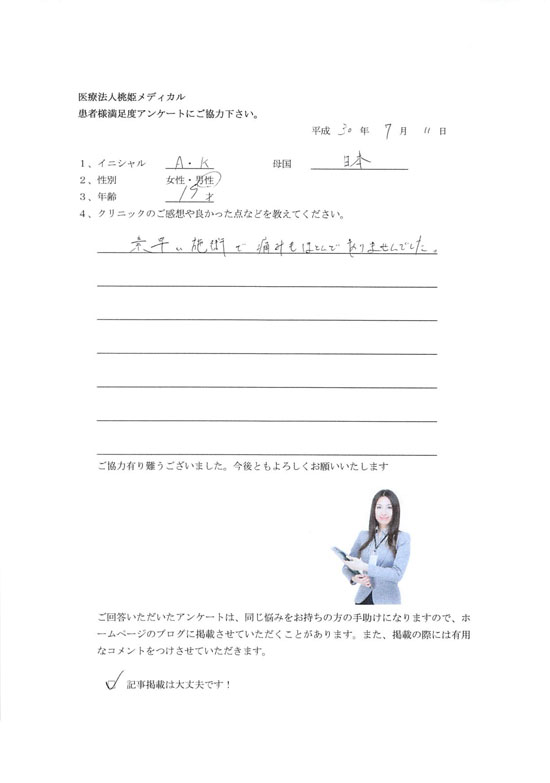 医療法人桃姫メディカル
患者様満足度アンケートにご協力下さい。
平成 30 年 7 月 11 日
1、イニシャル A・K 母国 日本
2、性別 女性・男性
3、年齢 19 才
4、クリニックのご感想や良かった点などを教えてください。
素早い施術で痛みもほとんどありませんでした。
ご協力有り難うございました。今後ともよろしくお願いいたします
ご回答いただいたアンケートは、同じ悩みをお持ちの方の手助けになりますので、ホ
ームページのブログに掲載させていただくことがあります。また、掲載の際には有用
なコメントをつけさせていただきます。
記事掲載は大丈夫です！